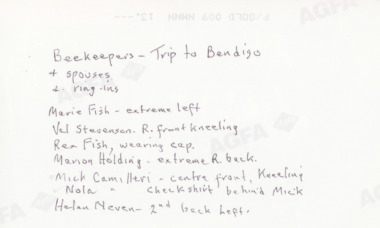 Beekeepers - Trip to Bendigo
+ spouses
& ring-ins
Marie Fish - extreme left
Val Stevenson. R. front kneeling
Rex Fish, wearing cap.
Marion Holding - extreme R. back.
Mick Camilleri - centre front, Kneeling
Nola " check shirt behind Mick
Helen Neven - 2nd back left.
AGFA